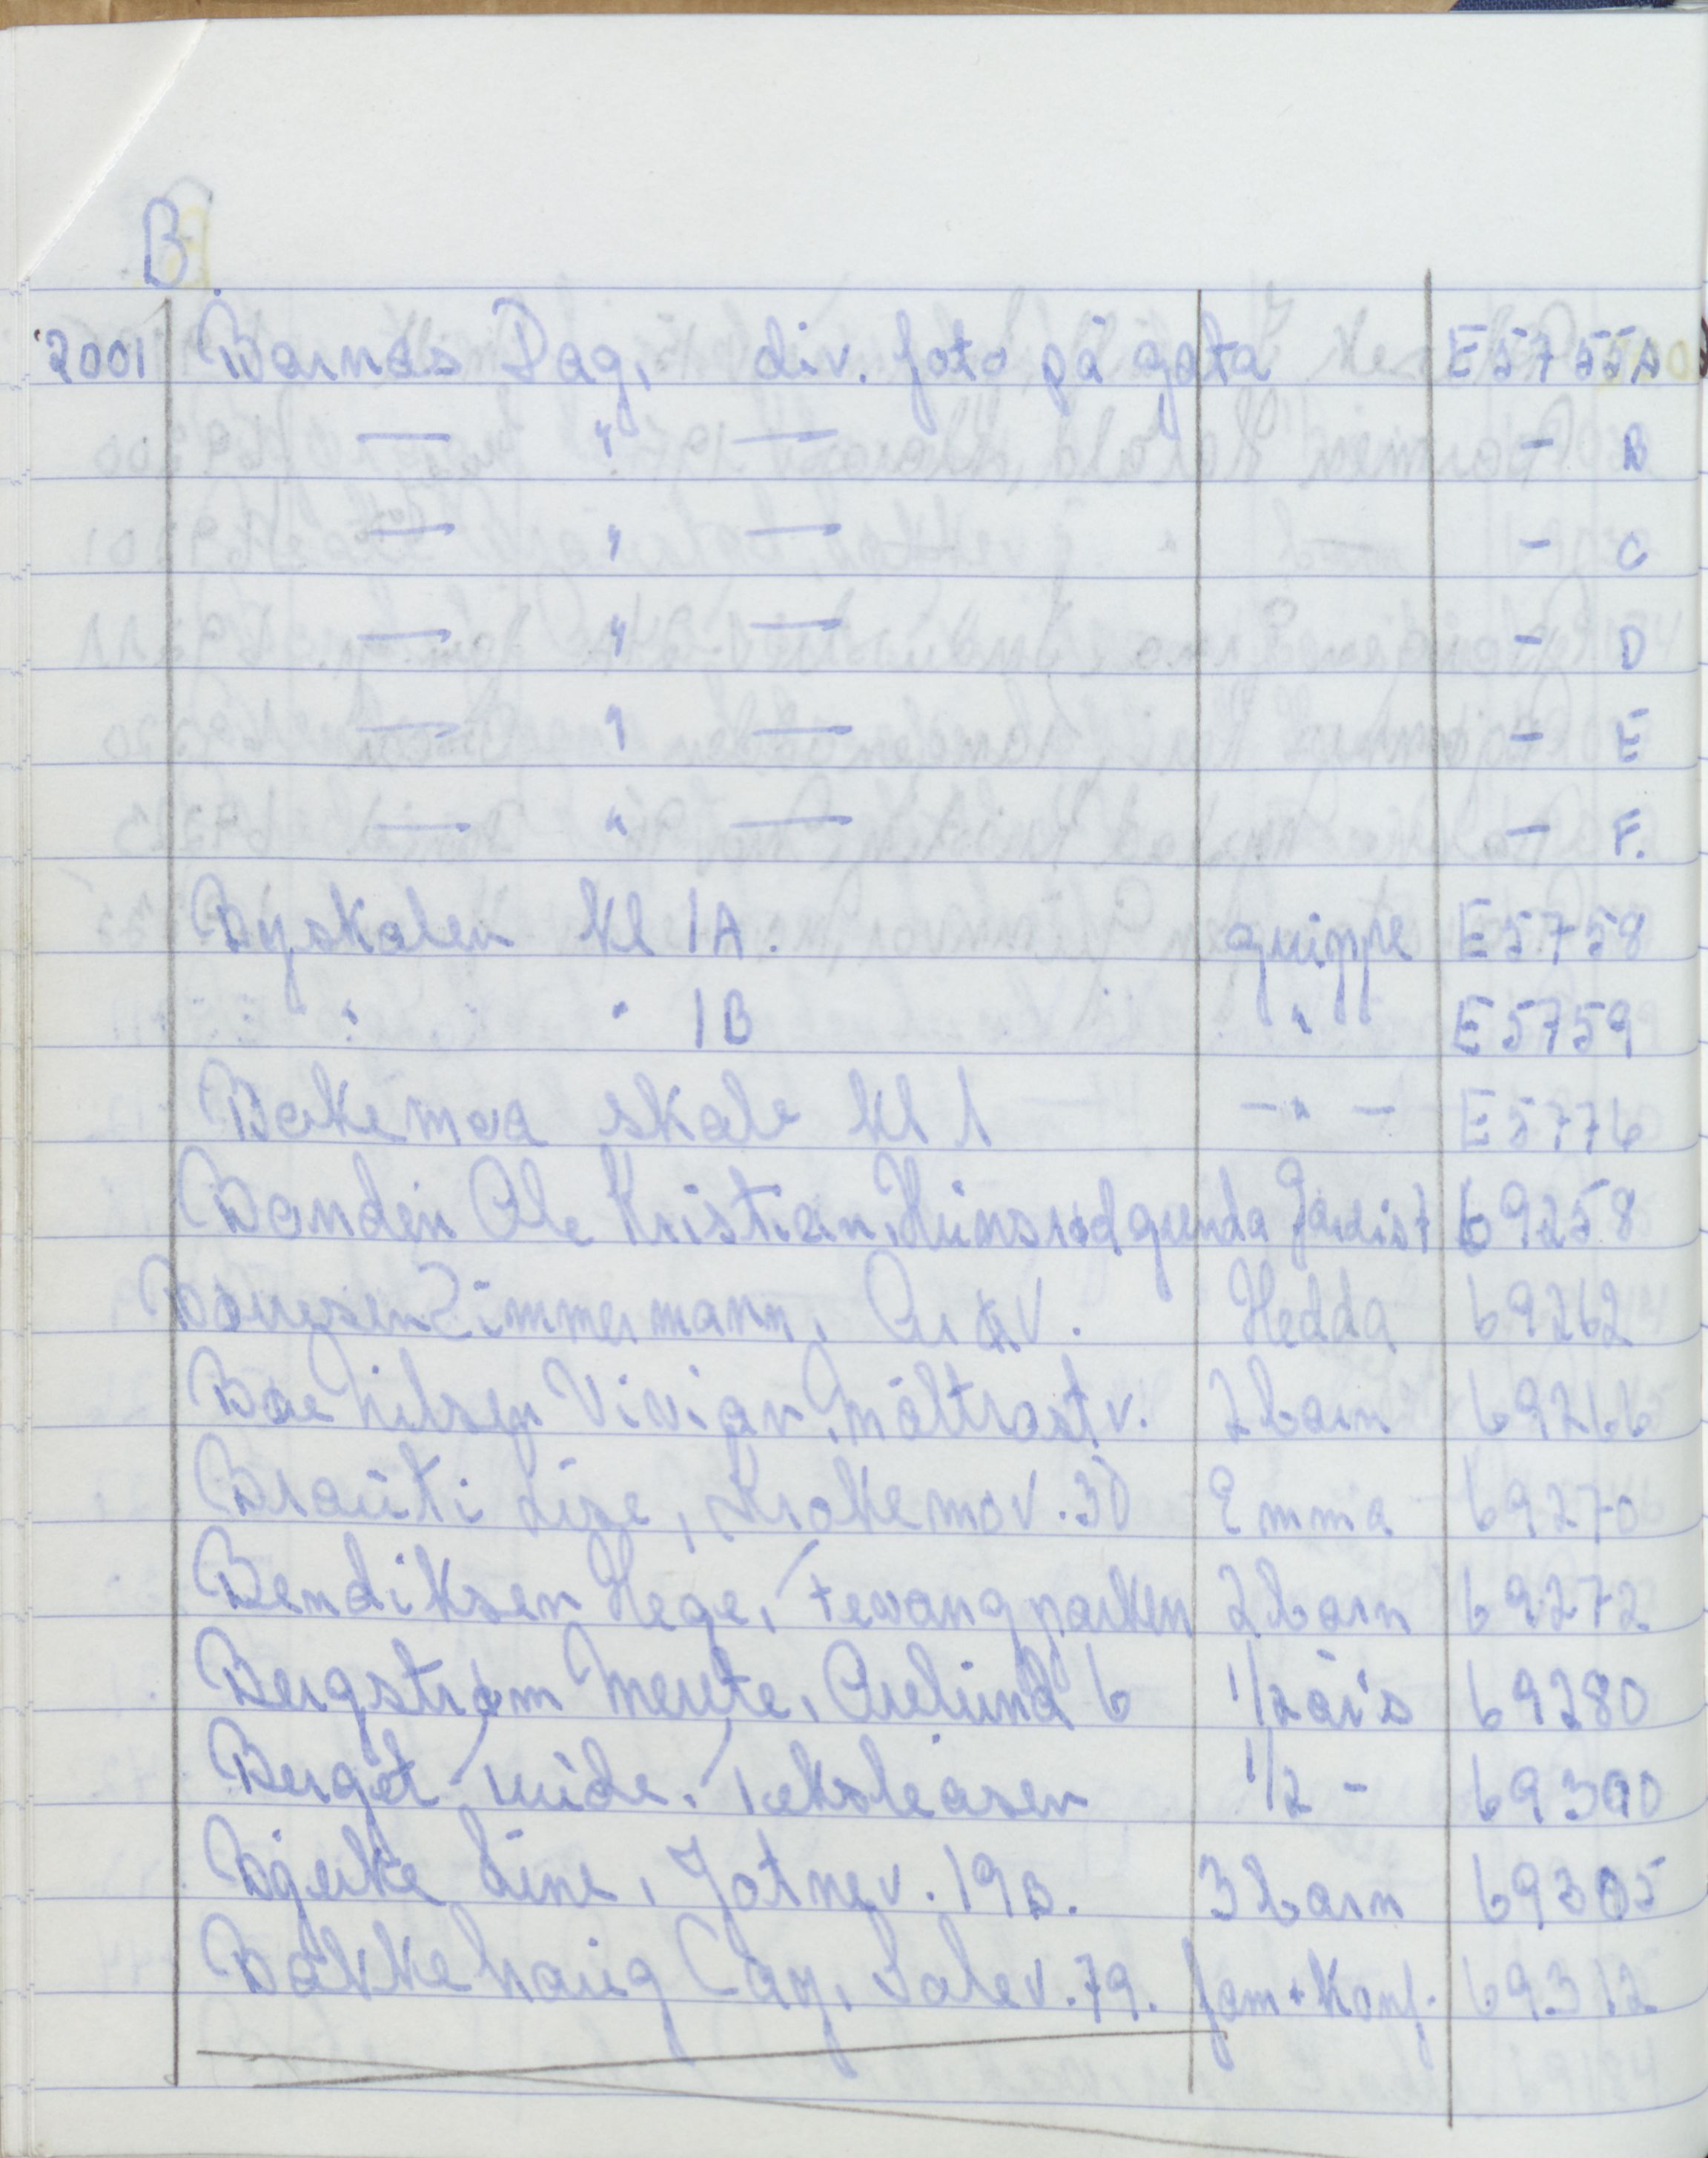 B.
2001 Barnas Dag, div. foto på gata E5755A
— " — - B
— " — - C
— " — - D
— " — - E
— " — - F.
Byskolen kl 1A. gruppe E5758
" " 1B " E5759
Bakkemoa skole kl 1 — " — E5776
Bonden Ole Kristian, Hunsrødgrenda Gardist 69258
Zimmermann, Hedda 69262
Boe Nilsen Vivian, Måltrostv. 2 barn 69266
Brauti Lise, Krokemov. 30 Emma 69270
Bendiksen Hege, Tevangparken 2 barn 69272
Bergstrøm Merete, Orelund 6 1/2 års 69280
1/2 - 69300
Bjerke Line, Jotnev. 19B. 3 barn 69305
Bakkehaug Cay, Solev. 79. fam + Konf. 69312